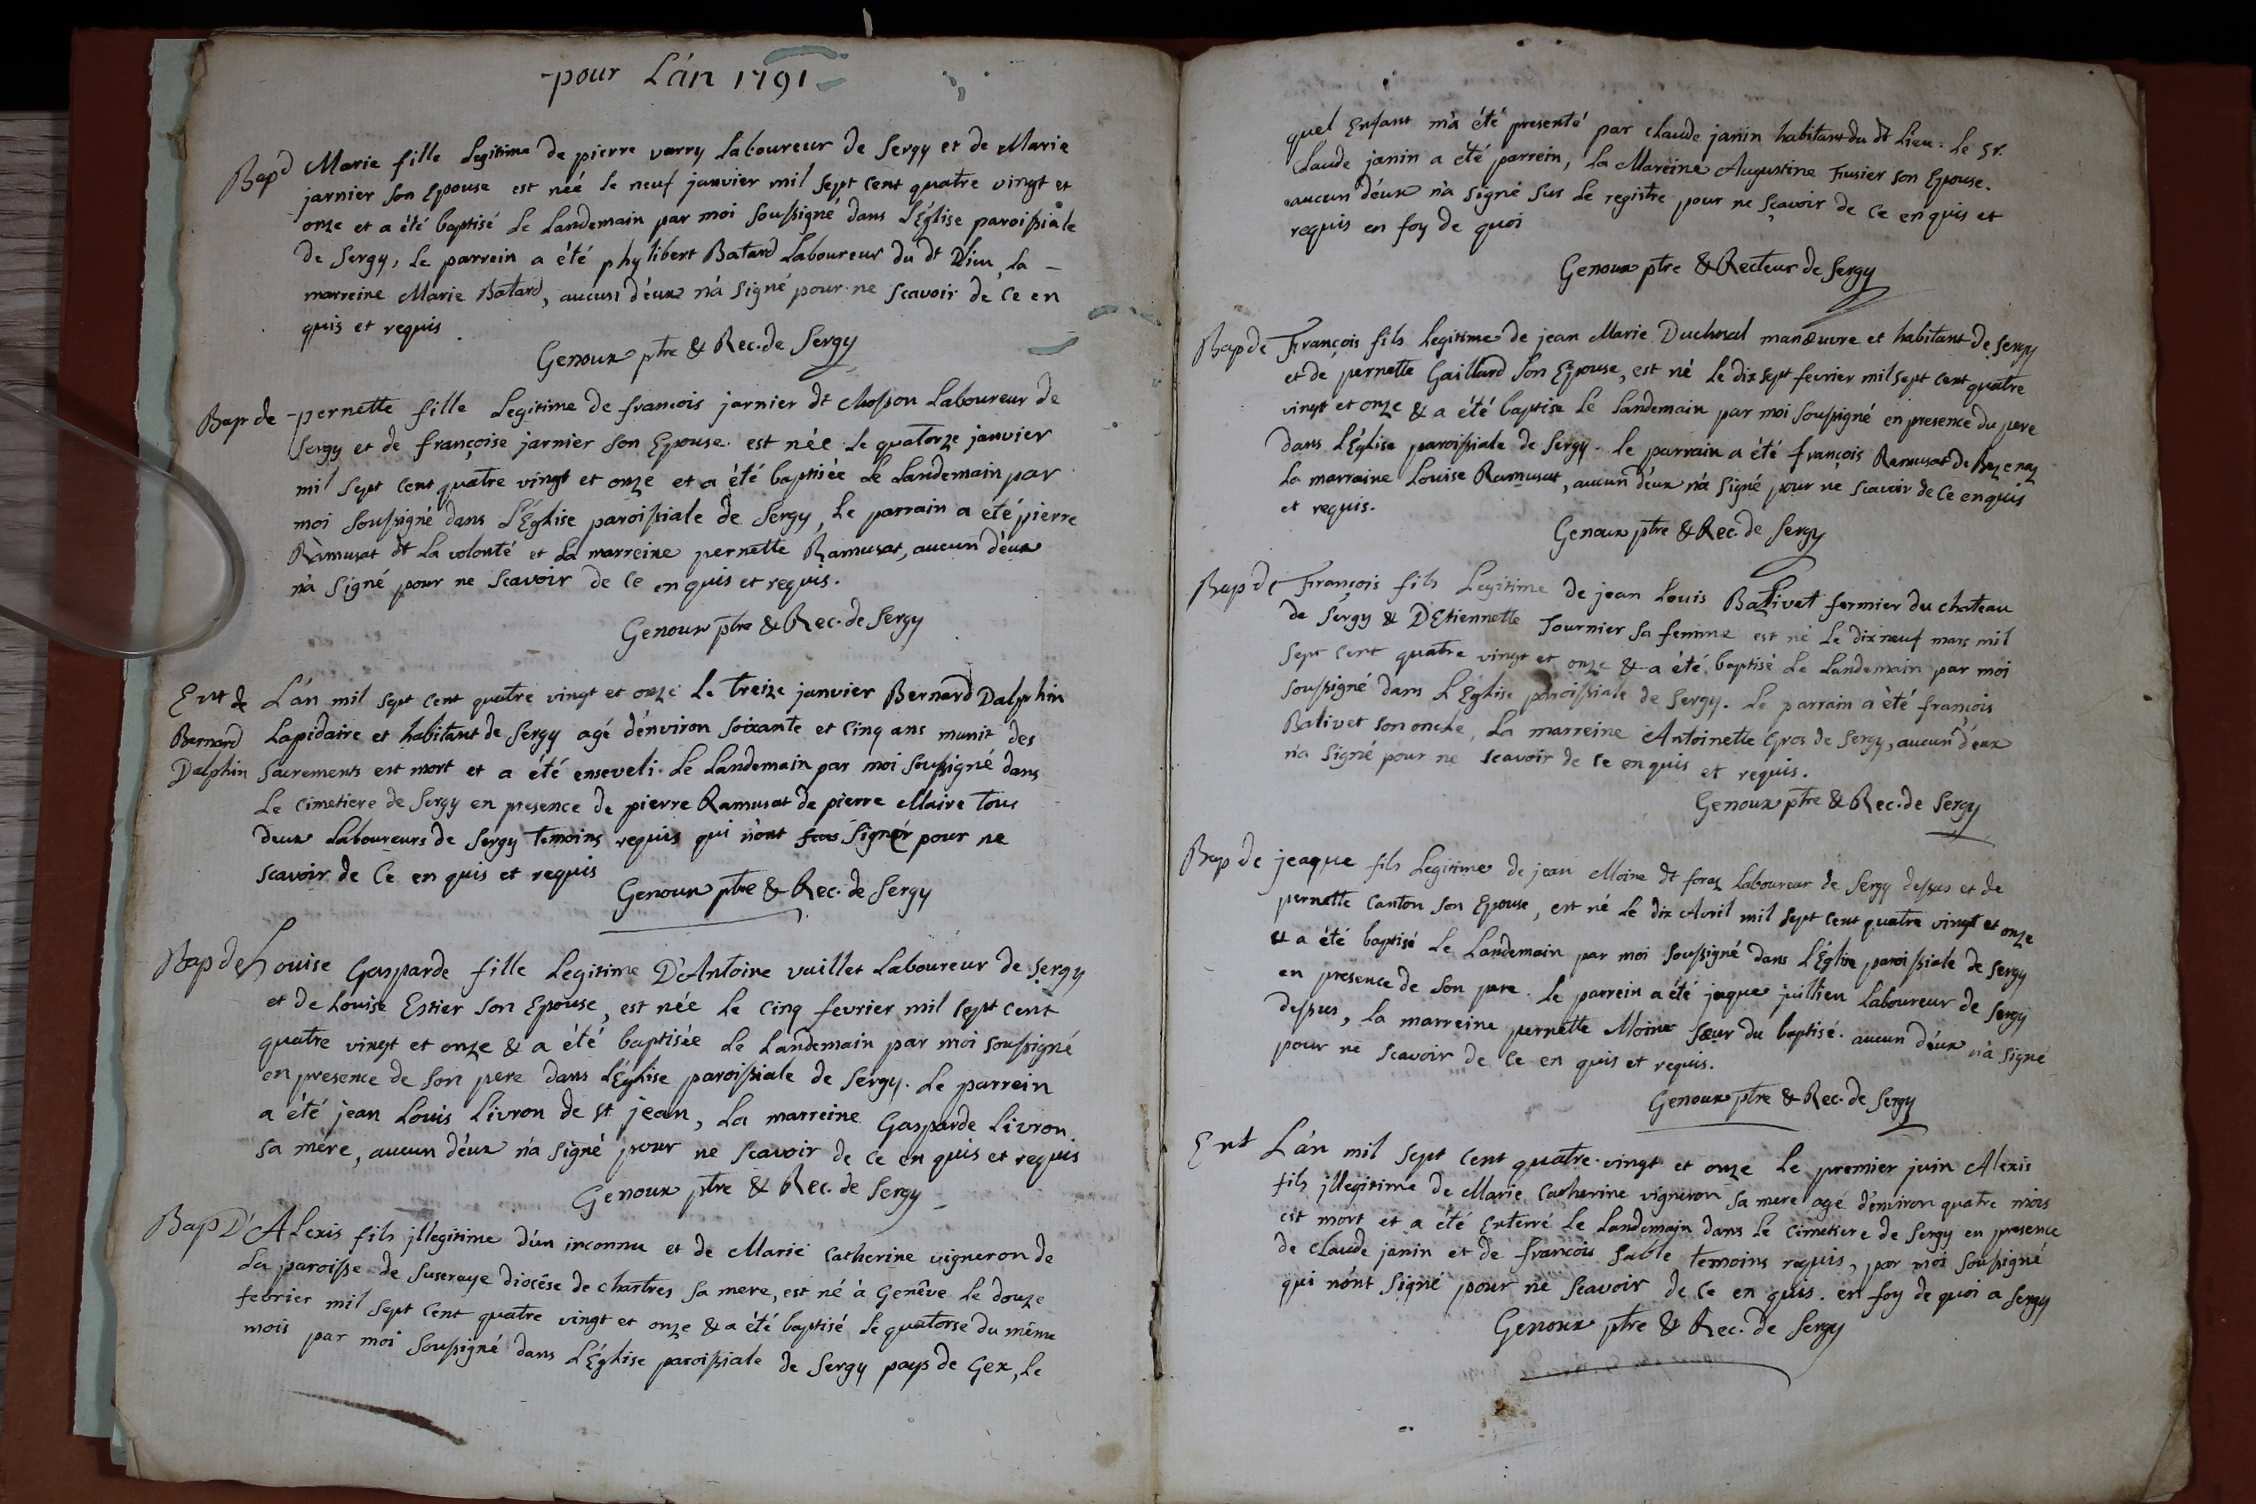 pour L'án 1791
Bapd Marie fille Legitime de pierre verry Laboureur de Sergy et de Marie
jarnier son Epouse est néé le neuf janvier mil sept cent quatre vingt et
onze et a été baptisé Le Landemain par moi soussigné dans L'Église paroissiale
de Sergy, Le parrein a été phylibert Batard Laboureur du dt Lieu, La
marreine Marie Batard, aucun d'eux n'a Signé pour ne scavoir de ce en
quis et requis.
Genoux ptre & Rec. de Sergy
Bap de pernette fille Legitime de francois jarnier dt Chosson Laboureur de
Sergy et de françoise jarnier son Epouse. est née le quatorze janvier
mil sept cent quatre vingt et onze et a été baptisée Le Landemain par
moi soussigné dans L'Église paroissiale de Sergy, Le parrain a été pierre
Ramusat dt La volonté et La marreine pernette Ramusat, aucun d'eux
n'a Signé pour ne Scavoir de Ce en quis et requis.
Genoux ptre & Rec. de Sergy
Ent de L'án mil sept cent quatre vingt et onze Le treize janvier Bernard Dalphin
Bernard Lapidaire et habitant de Sergy agé d'énviron soixante et cinq ans munit des
Dalphin Sacrements est mort et a été enseveli Le Landemain par moi soussigné dans
Le Cimetiere de Sergy en presence de pierre Ramusat de pierre Maire tous
deux Laboureurs de Sergy temoins requis qui n'ont Signér pour ne
scavoir de Ce en quis et requis
Genoux ptre & Rec. de Sergy
Bap de Louise Gasparde fille Legitime D'Antoine vuillet Laboureur de Sergy
et de Louise Estier son Epouse, est née Le Cinq fevrier mil sept cent
quatre vingt et onze & a été baptisée Le Landemain par moi soussigné
en presence de son pere dans L'Église paroissiale de Sergy. Le parrein
a été jean Louis Livron de st jean, La marreine Gasparde Livron
sa mere, aucun d'eux n'a signé pour ne Scavoir de Ce en quis et requis
Genoux ptre & Rec. de Sergy
Bap D'Alexis fils jllegitime d'un inconnu et de Marie Catherine vigneron de
La paroisse de Suseraye diocêse de Chartres sa mere, est né à Genêve Le douze
fevrier mil sept cent quatre vingt et onze & a été baptisé le quatorse du même
mois par moi soussigné dans L'Église paroissiale de Sergy pays de Gex, Le
quel Enfant m'a été presenté par Claude janin habitant du dt Lieu. Le Sr.
Claude janin a été parrein, La Mareine Augustine Fusier son Epouse.
aucun d'eux n'a signé sur Le registre pour ne sçavoir de Ce enquis et
requis en foy de quoi
Genoux ptre & Recteur de Sergy
Bap de François fils Legitime de jean Marie Duchnal manœuvre et habitant de Sergy
et de pernette Gaillard son Epouse, est né Le dix sept fevrier mil sept cent quatre
vingt et onze & a été baptise Le Landemain par moi soussigné en presence du pere
dans L'Église paroissiale de Sergy. Le parrain a été françois Ramusat de
La marraine Louise Ramusat, aucun d'eux n'a Signé pour ne Scavoir de Ce enquis
et requis.
Genoux ptre & Rec. de Sergy
Bap de François fils Legitime de jean Louis Balivet fermier du chateau
de Sergy & D'Etiennette Tournier sa femme est né Le dix neuf mars mil
sept cent quatre vingt et onze & a été baptisé Le Landemain par moi
soussigné dans L'Église paroissiale de Sergy. Le parrain a été françois
Balivet son oncle, La marreine Antoinette Gros de Sergy, aucun d'eux
n'a Signé pour ne scavoir de ce en quis et requis.
Genoux ptre & Rec. de Sergy
Bap de jeaque fils Legitime de jean Moine dt foraz Laboureur de Sergy dessus et de
pernette Canton son Epouse, est né Le dix Avril mil sept cent quatre vingt et onze
& a été baptisé Le Landemain par moi soussigné dans L'Église paroissiale de Sergy
en presence de son pere. Le parrein a été jaque juillien Laboureur de Sergy
dessus, La marreine pernette Moine Sœur du baptisé. aucun d'eux n'a signé
pour ne scavoir de ce en quis et requis.
Genoux ptre & Rec. de Sergy
Ent L'án mil sept cent quatre vingt et onze Le premier juin Alexis
fils jllegitime de Marie Catherine vigneron sa mere agé d'énviron quatre mois
est mort et a été Enterré Le Landemain dans Le Cimetiere de Sergy en presence
de Claude janin et de francois Sable temoins requis, par moi soussigné
qui n'ont Signé pour ne Scavoir de Ce en quis. en foy de quoi a Sergy
Genoux ptre & Rec. de Sergy